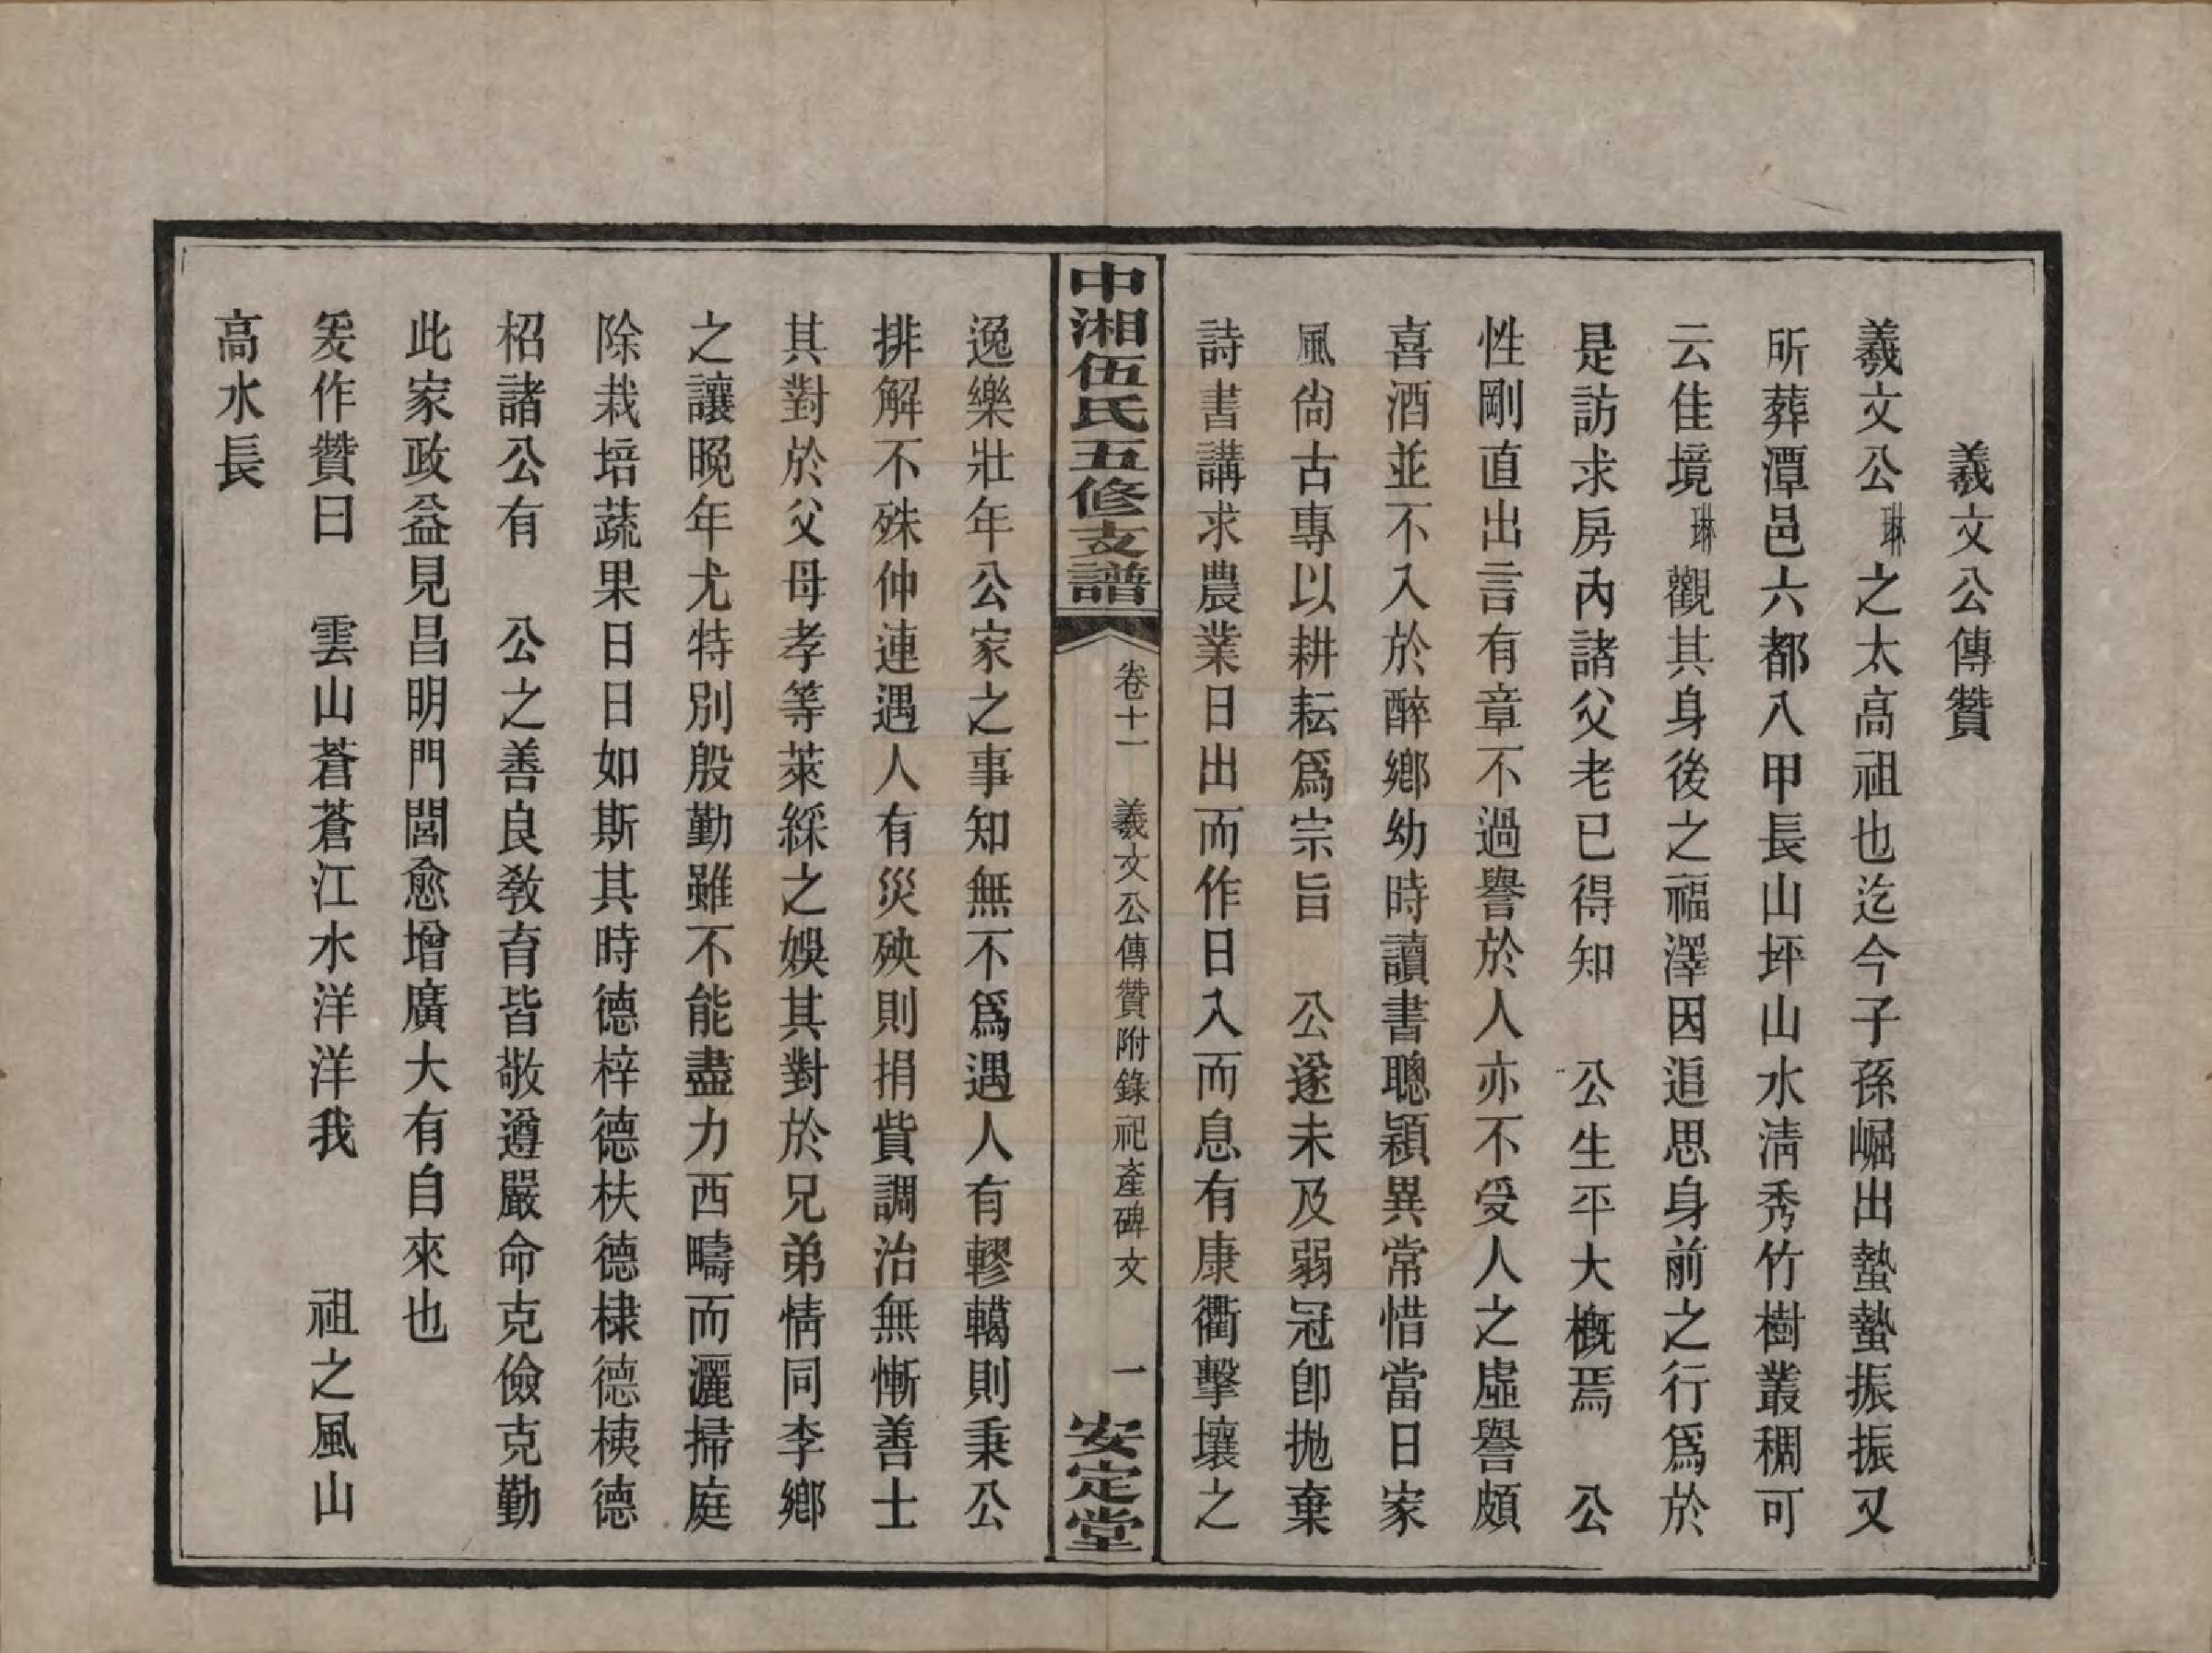 羲文公傳贊
羲文公琳之太高祖也迄今子孫崛出蟄蟄振振又
所葬潭邑六都八甲長山坪山水淸秀竹樹叢稠可
云佳境琳觀其身後之福澤因追思身前之行爲於
是訪求房內諸父老已得知　公生平大槪焉　公
性剛直出言有章不過譽於人亦不受人之虛譽頗
喜酒並不入於醉鄕幼時讀書聰穎異常惜當日家
風尙古專以耕耘爲宗旨　公遂未及弱冠卽拋棄
詩書講求農業日出而作日入而息有康衢擊壤之
中湘伍氏五修支譜
卷十一　羲文公傳贊附錄祀產碑文　一
安定堂
逸樂壯年公家之事知無不爲遇人有轇轕則秉公
排解不殊仲連遇人有災殃則捐貲調治無慚善士
其對於父母孝等萊綵之娛其對於兄弟情同李鄕
之讓晩年尤特別殷勤雖不能盡力西疇而灑掃庭
除栽培蔬果日日如斯其時德梓德扶德棣德桋德
柖諸公有　公之善良敎育皆敬遵嚴命克儉克勤
此家政益見昌明門閭愈增廣大有自來也
爰作贊曰　雲山蒼蒼江水洋洋我　祖之風山
高水長